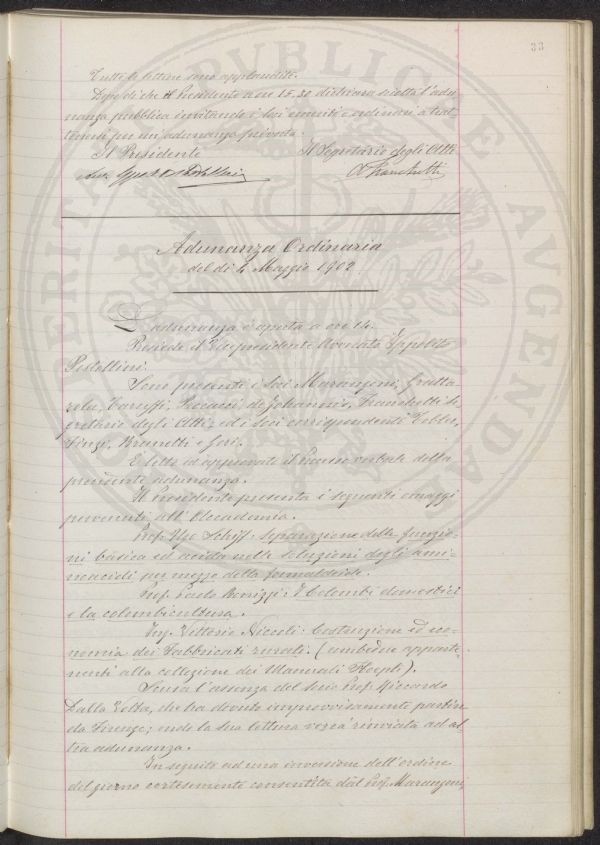 33
Tutte le letture sono applaudite.
Dopo di che il Presidente a ore 15.30 dichiara sciolta l'adu-
nanza pubblica invitando i Soci emeriti e ordinari a trat-
tenersi per un'adunanza privata.
Il Presidente Il Segretario degli Atti
A Franchetti
Adunanza Ordinaria
del dì 4 Maggio 1902.
L'adunanza è aperta a ore 14.
Presiede il Vicepresidente Avvocato Ippolito
Pestellini.
Sono presenti i Soci Marangoni, Gratta
rola, Caruffi, de Johannis, Franchetti Se
gretario degli Atti; ed i Soci corrispondenti
Brunetti e Gori.
È letto ed approvato il Processo verbale della
precedente adunanza.
Il Presidente presenta i seguenti omaggi
pervenuti all'Accademia.
Prof. Ugo Schiff: Separazione delle funzio-
ni basica ed acida nelle soluzioni degli ami-
noacidi per mezzo della formaldeide.
Prof. Paolo Bonizzi: I Colombi domestici
e la colombicultura.
Ing. Vittorio Niccoli: Costruzione ed eco-
nomia dei Fabbricati rurali. (ambedue apparte-
nenti alla collezione dei Manuali Hoepli).
Scusa l'assenza del Socio Prof. Riccardo
Dalla Volta, che ha dovuto improvvisamente partire
da Firenze; onde la sua lettura verrà rinviata ad al
tra adunanza.
In seguito ad una inversione dell'ordine
del giorno cortesemente consentita dal Prof. Marangoni,